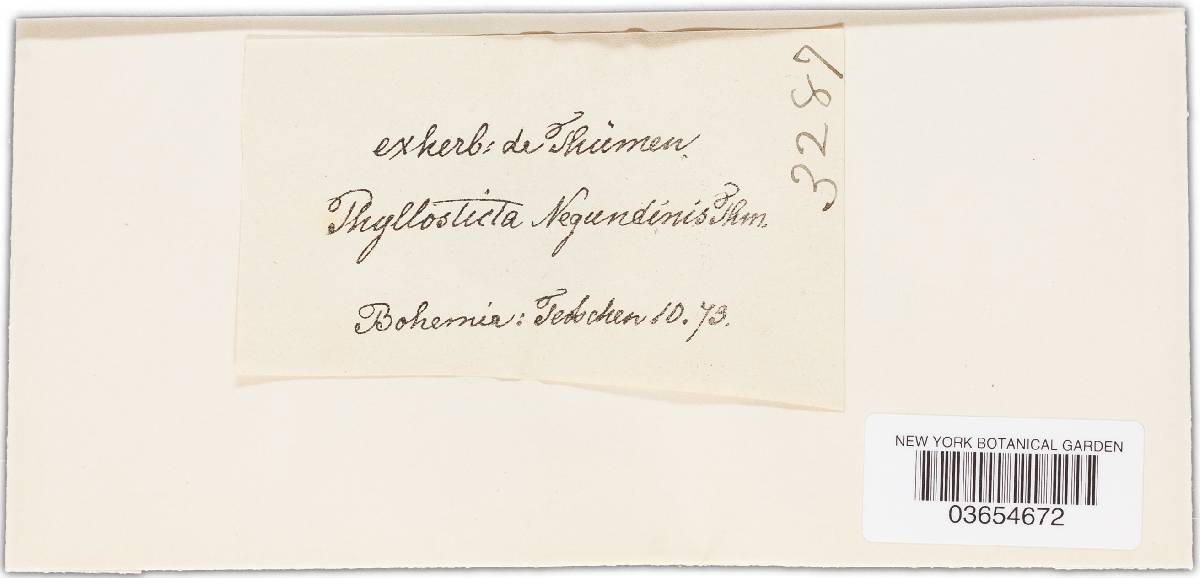 exherb: de Thümen.
Phyllosticta Negundinis Thm.
Bohemia: Tetschen 10. 73.
3287
NEW YORK BOTANICAL GARDEN
03654672